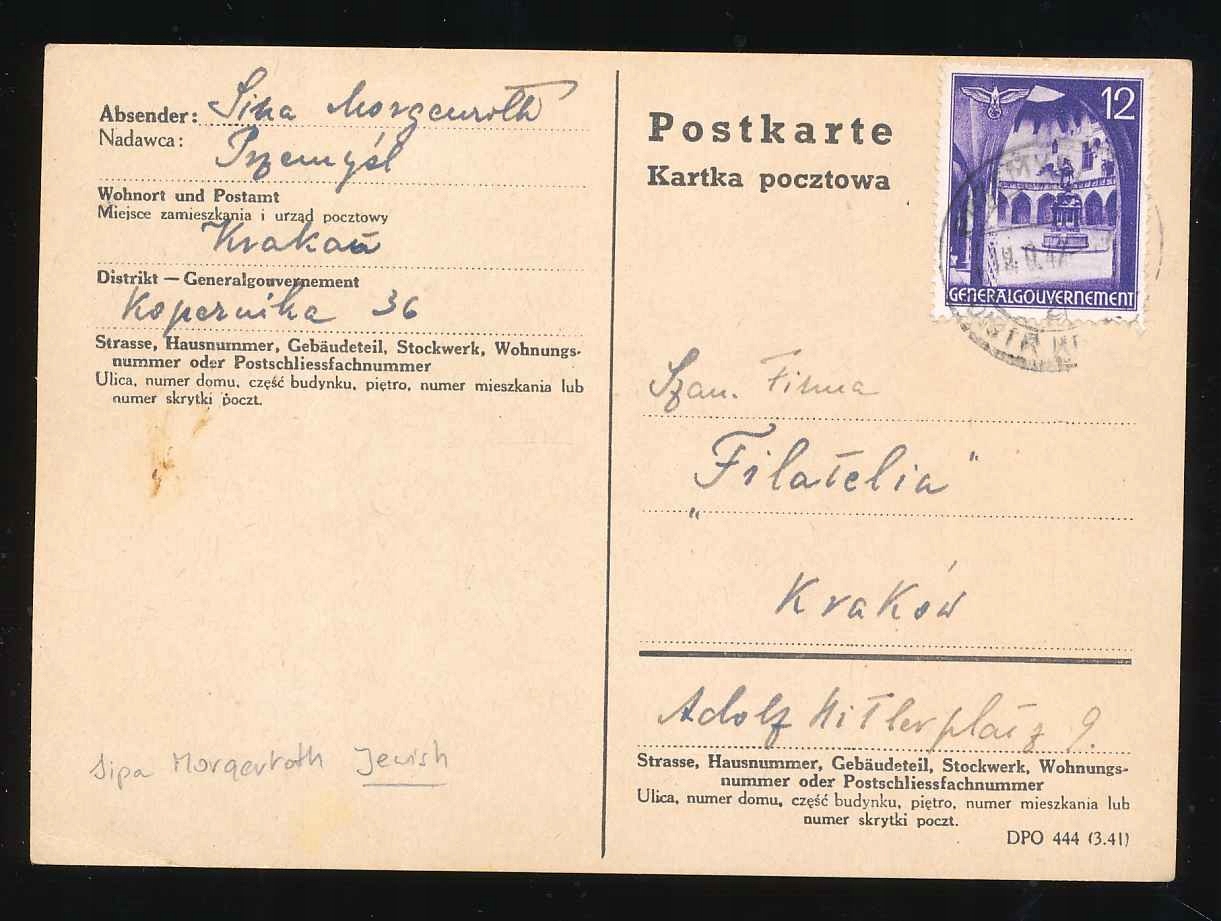 Absender: Sina Morgenroth
Nadawca:
Przemyśl
Wohnort und Postamt
Miejsce zamieszkania i urząd pocztowy
Krakau
Distrikt — Generalgouvernement
Kopernika 36
Strasse, Hausnummer, Gebäudeteil, Stockwerk, Wohnungs-
nummer oder Postschliessfachnummer
Ulica, numer domu, część budynku, piętro, numer mieszkania lub
numer skrytki poczt.
Sipa Morgenroth Jewish
Postkarte
Kartka pocztowa
12
GENERALGOUVERNEMENT
Szan. Firma
„Filatelia"
Kraków
Adolf Hitlerplatz 9.
Strasse, Hausnummer, Gebäudeteil, Stockwerk, Wohnungs-
nummer oder Postschliessfachnummer
Ulica, numer domu, część budynku, piętro, numer mieszkania lub
numer skrytki poczt.
DPO 444 (3.41)